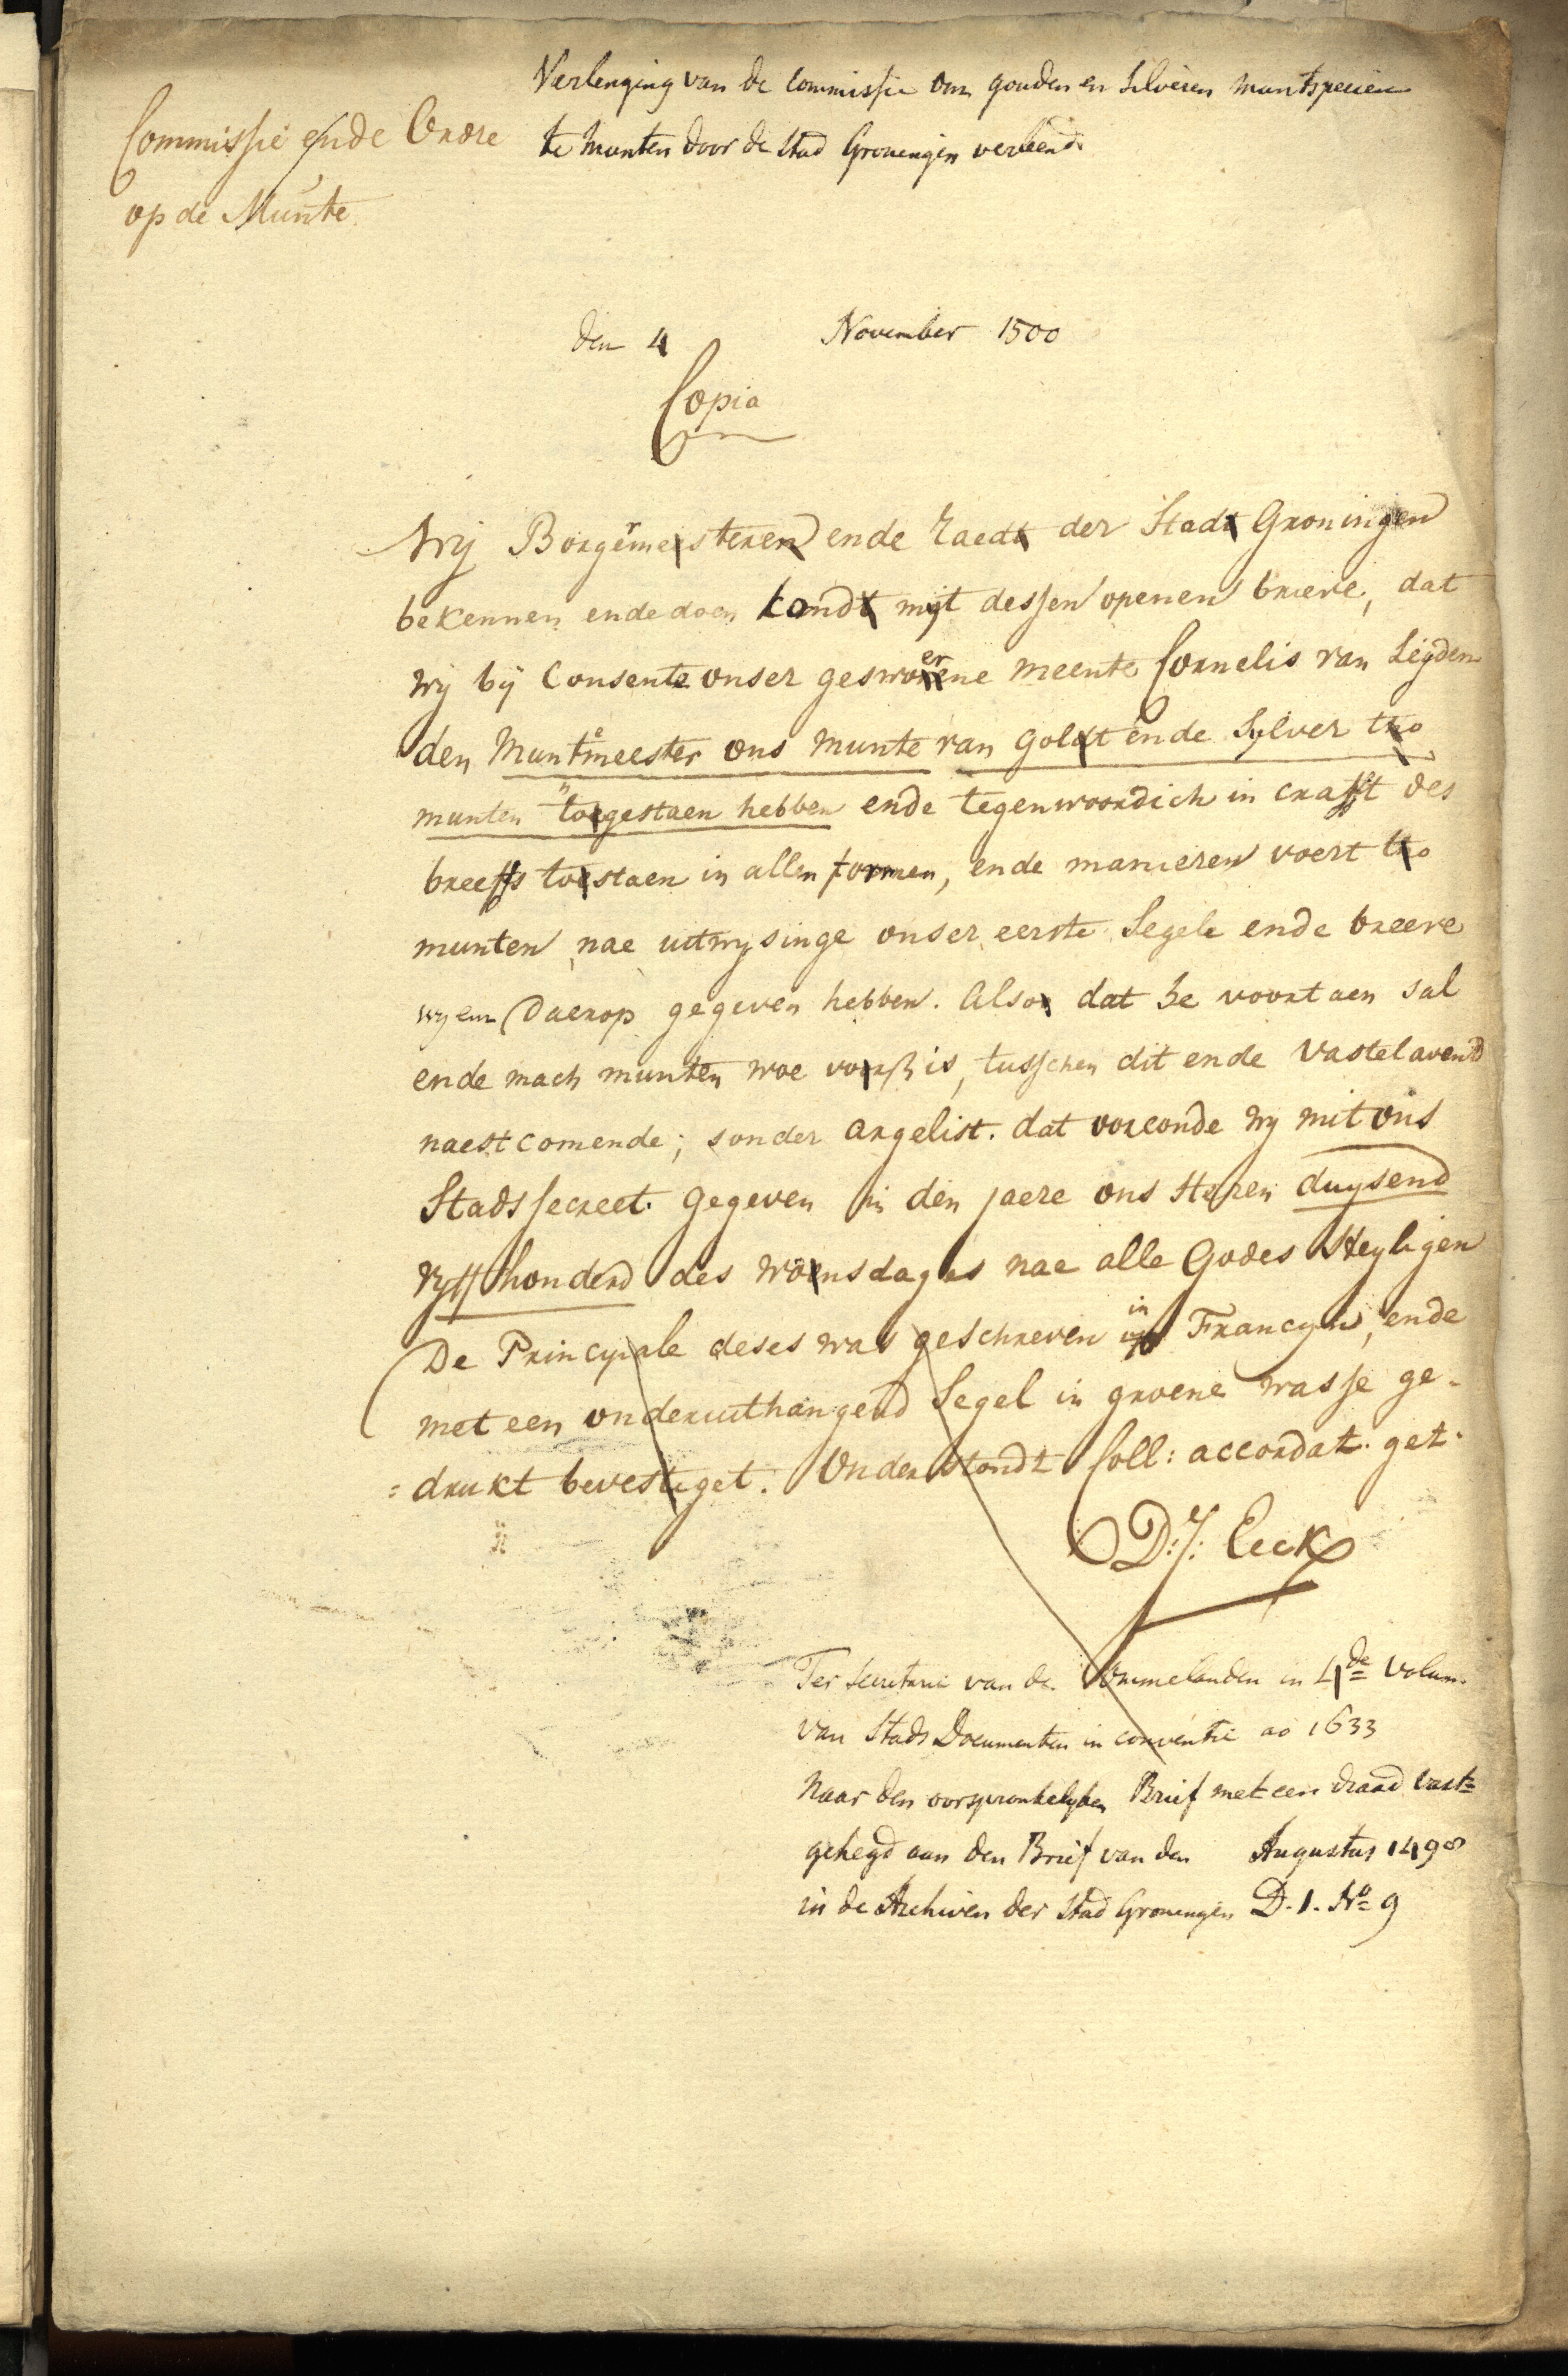 Verlenging van de Commissie om gouden en silveren muntspecien
te munten door de Stad Groningen verleend.
Commissie ende Ordre
op de Munte.
den 4 November 1500
Copia
Wy Borgermesteren ende Raedt der Stadt Groningen
bekennen ende doen kondt myt dessen openen brieve, dat
wy by Consente onser geswoerene meente Cornelis van Leyden
den Muntemeester ons munte van goldt ende Sylver tho
munten toegestaen hebben ende tegenwoordich in crafft des
breeffs toestaen in allen formen, ende manieren voert tho
munten nae uitwysinge onser eerste Segele ende breeve
wy em Daerop gegeven hebben. Also dat he voort aen sal
ende mach munten woe vorß is, tusschen dit ende Vastelavend
naestcomende; sonder argelist. dat orconde wy mit ons
Stadssecreet. gegeven in den jaere ons Heren duysend
vyffhonderd des woensdages nae alle Godes Heyligen
De Principale deses was geschreven in Francyn, ende
met een onderuuthangend Segel in groene wasse ge-
=drukt bevestiget. Onderstondt Coll: accordat. get.
D: J: Eeck
Ter Secretarie van de Ommelanden in 4de Volum.
van Stads Documenten in conventie ao 1633
Naar den oorspronkelyken Brief met een draad vast=
gehegd aan den Brief van den Augustus 1498
in de Archiven der Stad Groningen D. 1. No 9